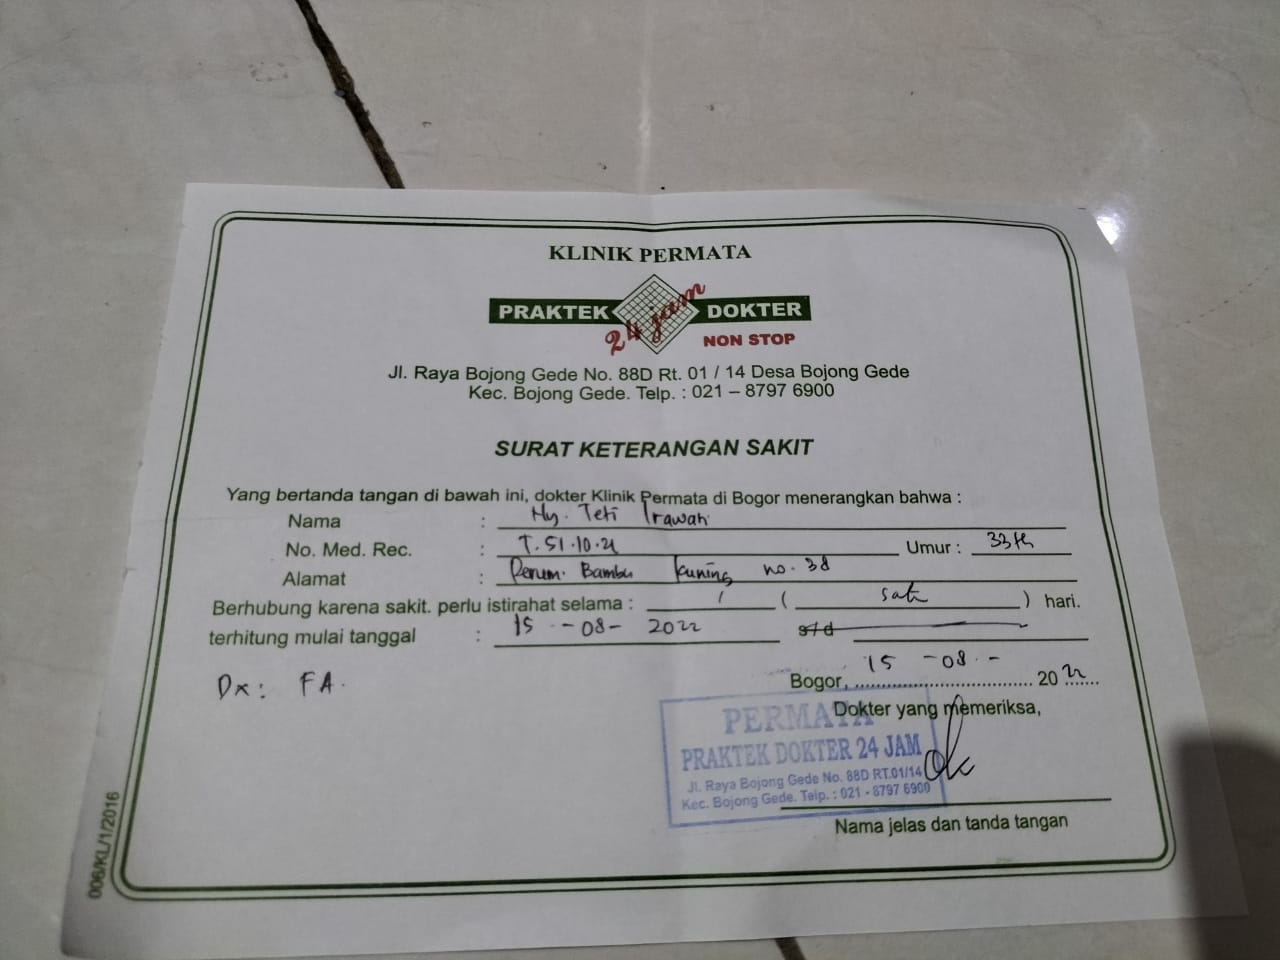 KLINIK PERMATA
PRAKTEK 24 jam DOKTER
NON STOP
Jl. Raya Bojong Gede No. 88D Rt. 01 / 14 Desa Bojong Gede
Kec. Bojong Gede. Telp. : 021 – 8797 6900
SURAT KETERANGAN SAKIT
Yang bertanda tangan di bawah ini, dokter Klinik Permata di Bogor menerangkan bahwa :
Nama : Ny. Teti Irawati
No. Med. Rec. : T.51.10.21 Umur : 33th
Alamat : Perum. Bambu Kuning no. 38
Berhubung karena sakit. perlu istirahat selama : 1 ( satu ) hari.
terhitung mulai tanggal : 15 - 08 - 2022 s/d
Dx : FA.
Bogor, 15 - 08 - 2022
Dokter yang memeriksa,
PERMATA
PRAKTEK DOKTER 24 JAM
Jl. Raya Bojong Gede No. 88D RT.01/14
Kec. Bojong Gede. Telp. : 021 - 8797 6900
Nama jelas dan tanda tangan
006/KL/1/2016